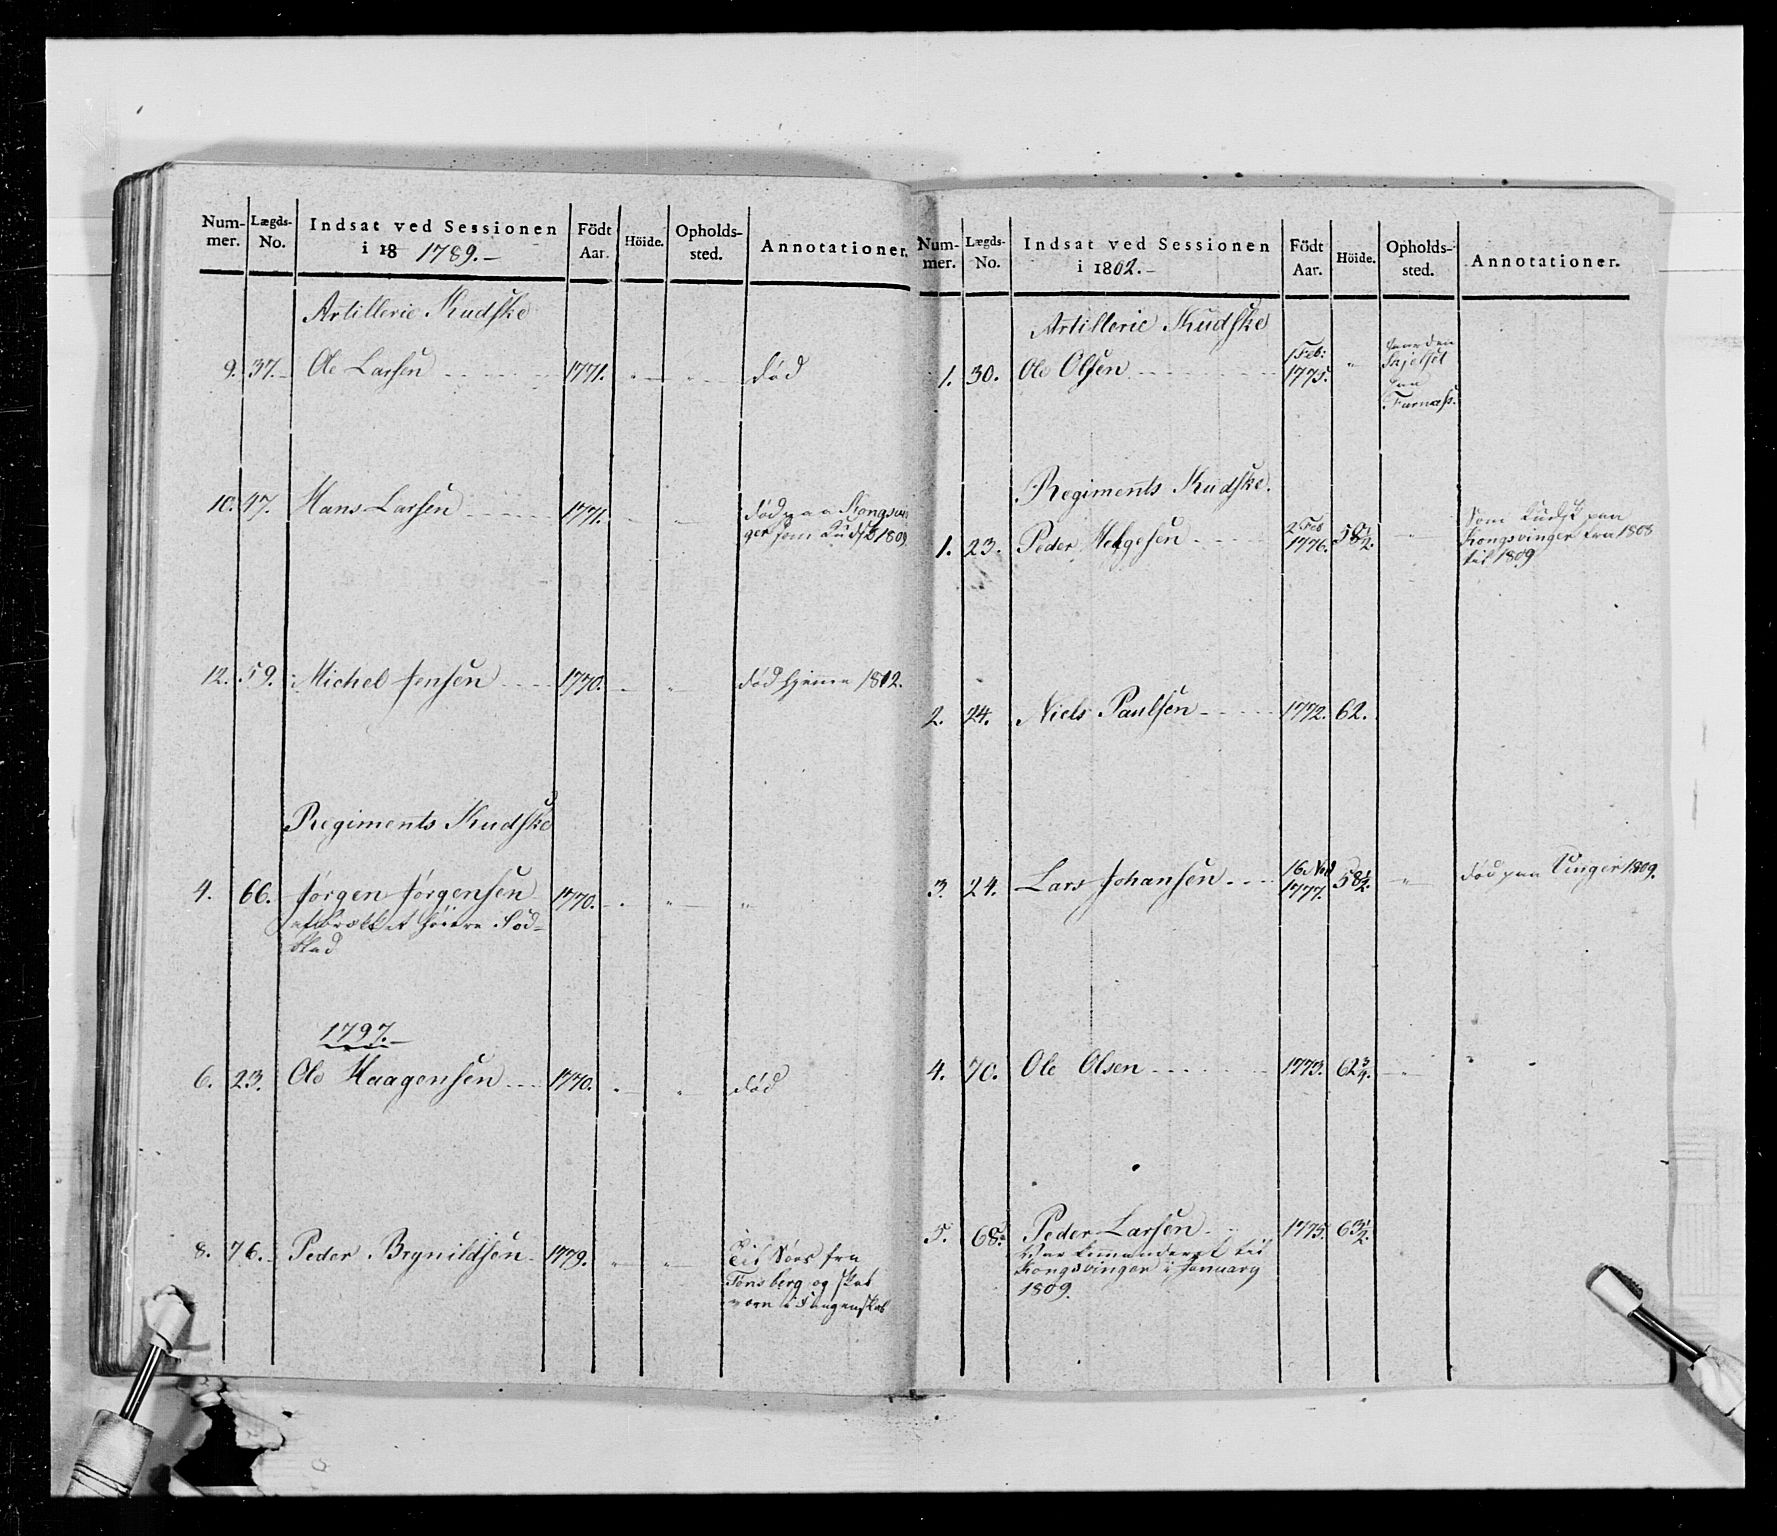 Num-mer. Lægds-No. Indsat ved Sessionen i 18 1789.- Födt Aar. Höide. Opholds-sted. Annotationer.
Artillerie Kudske
9. 37. Ole Larsen 1771. " " død
10. 47. Hans Larsen 1771. død paa Kongsvin
ger som Kudsk 1809
12. 59. Michel Jensen 1770. " " død hjeme 1812.
Regiments Kudske
4. 66. Jørgen Jørgensen 1770. " " "
høire
1797.-
6. 23. Ole Haagensen 1770. " " død
8. 76. Peder Brynildsen 1779. " "
Til Søes fra
Tønsberg og skal
være i Fangenskab
Num-mer. Lægds-No. Indsat ved Sessionen i 1802.- Födt Aar. Höide. Opholds-sted. Annotationer.
Artillerie Kudske
1. 30. Ole Olsen 1 Feb: 1775. "
Furness.
Regiments Kudske.
1. 23. Peder Helgesen 2 Feb 1776. 58½. "
Som Kudsk paa
Kongsvinger fra 1808
til 1809
2. 24. Niels Paulsen 1772. 62.
3. 24. Lars Johansen 1777. 58½. " død paa Vinger 1809.
4. 70. Ole Olsen 1773. 62¾. " " "
5. 68. Peder Larsen 1775. 63½.
Var komanderet til
Kongsvinger i January
1809.